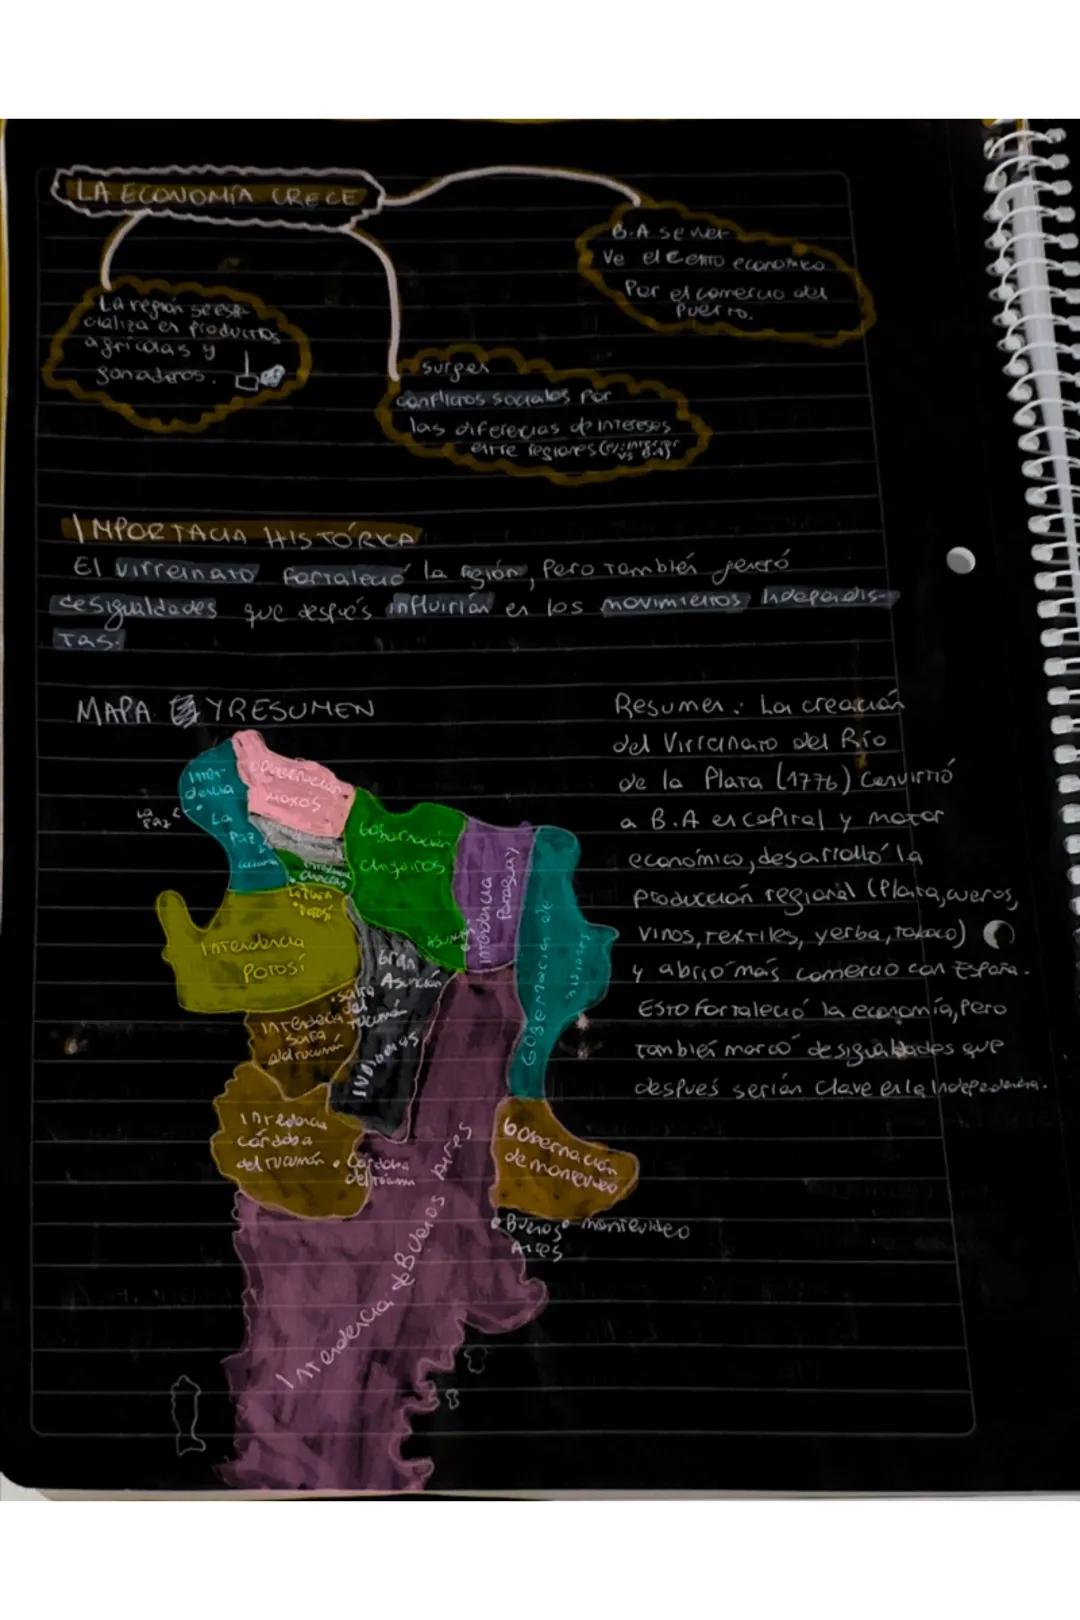 LA ECONOMÍA CRECE
B.A se vuel-
ve el centro económico
Por el comercio del
Puerto.
La región se espe-
cializa en productos
agrícolas y
ganaderos.
surgen
conflictos sociales por
las diferencias de intereses
entre regiones (ej: interior
vs B.A)
IMPORTACIA HISTÓRICA
El virreinato fortaleció la región, pero también generó
desigualdades que después influirían en los movimientos independis-
tas.
MAPA Y RESUMEN
Resumen: La creación
del Virreinato del Río
de la Plata (1776) convirtió
a B.A en capital y motor
económico, desarrolló la
producción regional (Plata, cueros,
vinos, textiles, yerba, tabaco)
y abrió más comercio con España.
Esto fortaleció la economía, pero
también marcó desigualdades que
después serían clave en la independencia.
Inten-
dencia
La
Paz
La
Paz
Gobernación
Moxos
Gobernación
Chiquitos
Intendencia
Paraguay
Gobernación de
misiones
Intendencia
charcas
La Plata
Potosí
Intendencia
Potosí
Asunción
Gran
Asunción
Salta
del
Tucumán
Intendencia
Salta
del Tucumán
INDÍGENAS
Intendencia
córdoba
del Tucumán
Córdoba
del Tucumán
Intendencia de Buenos Aires
Gobernación
de montevideo
Buenos
Aires
montevideo